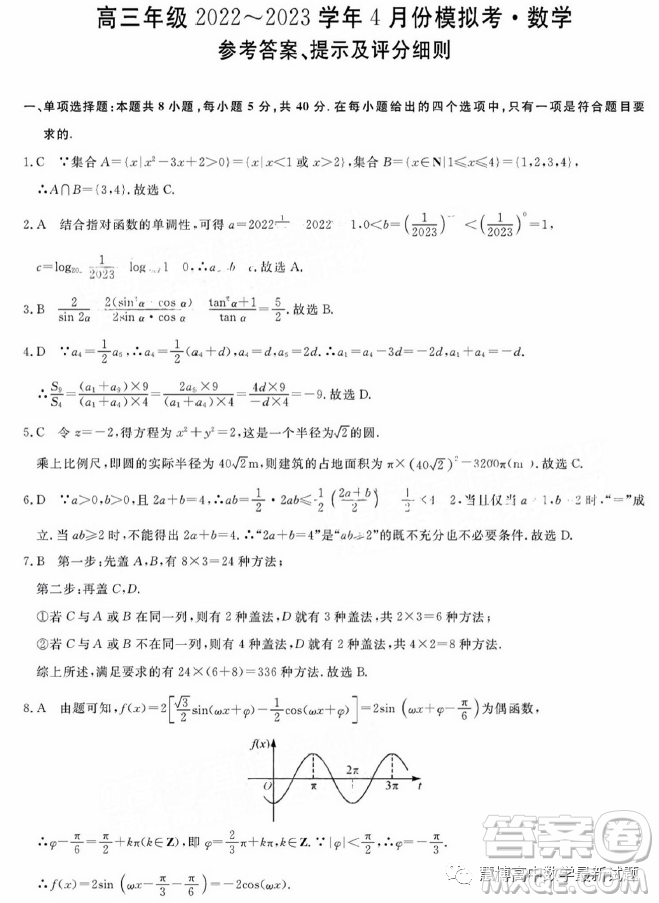 高三年级 2022～2023 学年 4 月份模拟考·数学
参考答案、提示及评分细则
一、单项选择题：本题共 8 小题，每小题 5 分，共 40 分. 在每小题给出的四个选项中，只有一项是符合题目要
求的.
1.C ∵集合 A={x|x²-3x+2>0}={x|x<1 或 x>2},集合 B={x∈N|1≤x≤4}={1,2,3,4},
∴A∩B={3,4}.故选 C.
2.A 结合指对函数的单调性,可得 a=2022 2022 1,0<b=(1/2023) <(1/2023)⁰=1,
c=log 1/2023 log 1 0,∴a b c.故选 A.
3.B 2/sin 2α 2(sin²α cos α)/2sin α·cos α tan²α+1/tan α=5/2.故选 B.
4.D ∵a₄=1/2a₅,∴a₄=1/2(a₄+d),a₄=d,a₅=2d.∴a₁=a₄-3d=-2d,a₁+a₄=-d.
∴S₉/S₄=(a₁+a₉)×9/(a₁+a₄)×4=2a₅×9/(a₁+a₄)×4=4d×9/-d×4=-9.故选 D.
5.C 令 z=-2,得方程为 x²+y²=2,这是一个半径为√2的圆.
乘上比例尺,即圆的实际半径为 40√2m,则建筑的占地面积为 π×(40√2)² 3200π(m ).故选 C.
6.D ∵a>0,b>0,且 2a+b=4,∴ab=1/2·2ab≤1/2(2a+b/2) 1/2×4 2,当且仅当 a 1,b 2 时,“=”成
立.当 ab≥2 时,不能得出 2a+b=4.∴“2a+b=4”是“ab 2”的既不充分也不必要条件.故选 D.
7.B 第一步:先盖 A,B,有 8×3=24 种方法;
第二步:再盖 C,D.
①若 C 与 A 或 B 在同一列,则有 2 种盖法,D 就有 3 种盖法,共 2×3=6 种方法;
②若 C 与 A 或 B 不在同一列,则有 4 种盖法,D 就有 2 种盖法,共 4×2=8 种方法.
综上所述,满足要求的有 24×(6+8)=336 种方法.故选 B.
8.A 由题可知,f(x)=2[√3/2sin(ωx+φ)-1/2cos(ωx+φ)]=2sin(ωx+φ-π/6)为偶函数,
f(x)
O π 2π 3π t
∴φ-π/6=π/2+kπ(k∈Z),即 φ=2/3π+kπ(k∈Z).∵|φ|<π/2,∴φ=-π/3.
∴f(x)=2sin(ωx-π/3-π/6)=-2cos(ωx).
答案圈
慧博高中数学最新试题
MXQE.COM